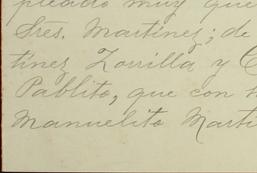 pleado muy que
Sres. Martinez; de
tinez Zorrilla y
Pablito, que con
Manuelito Marti